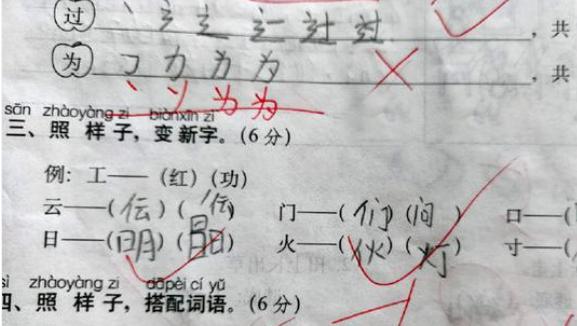 过 丶 共
为 フ 力 为 为 共
丶 丷 为 为
sān zhàoyàng zi biànxīn zì
三、照样子，变新字。(6分)
例：工——（红）（功）
云——（伝）（伝） 门——（们）（间） 口——（
日——（明）（晶） 火——（伙）（灯） 寸——（
sì zhàoyàng zi dāpèi cí yǔ
四、照样子，搭配词语。(6分)